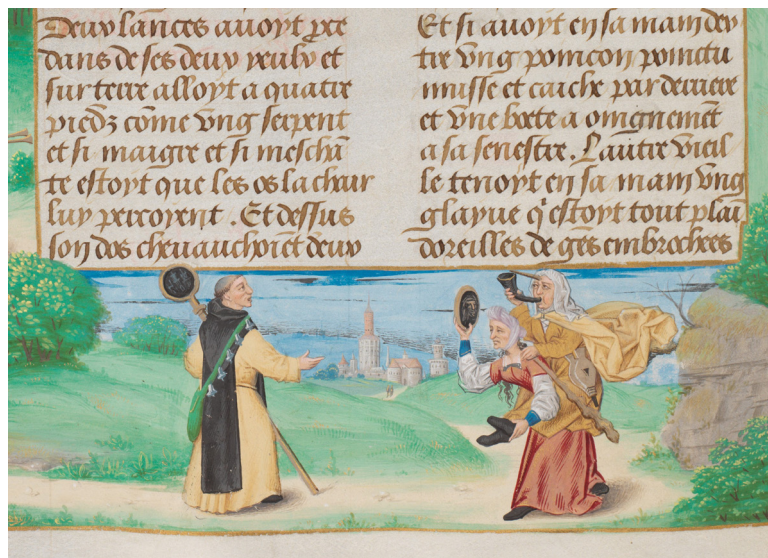 Deux lances auoyt
dans de ses deux yeulx et
sur terre alloyt a quatre
piedz cōme vng serpent
et si maigre et si meschā
te estoyt que les os la chair
luy percoyent . Et dessus
son dos cheuauchoiēt deux
Et si auoyt en sa main dex
tre vng poincon poinctu
musse et caiche par derriere
et vne boete a oingnemēt
a sa senestre . Lautre vieil
le tenoyt en sa main vng
glayue q̄ estoyt tout plai
doreilles de gēs embrochees